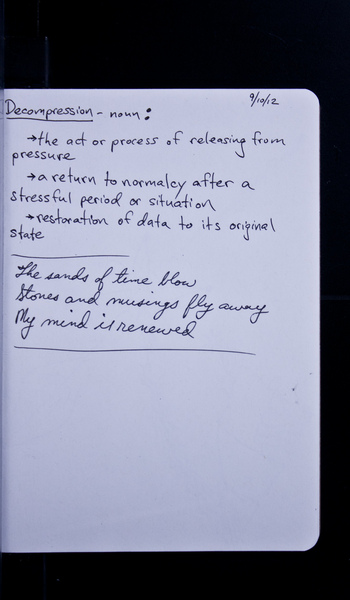 9/10/12
Decompression - noun:
→the act or process of releasing from
pressure
→a return to normalcy after a
stressful period or situation
→restoration of data to its original
state
The sands of time blow
Stones and musings fly away
My mind is renewed